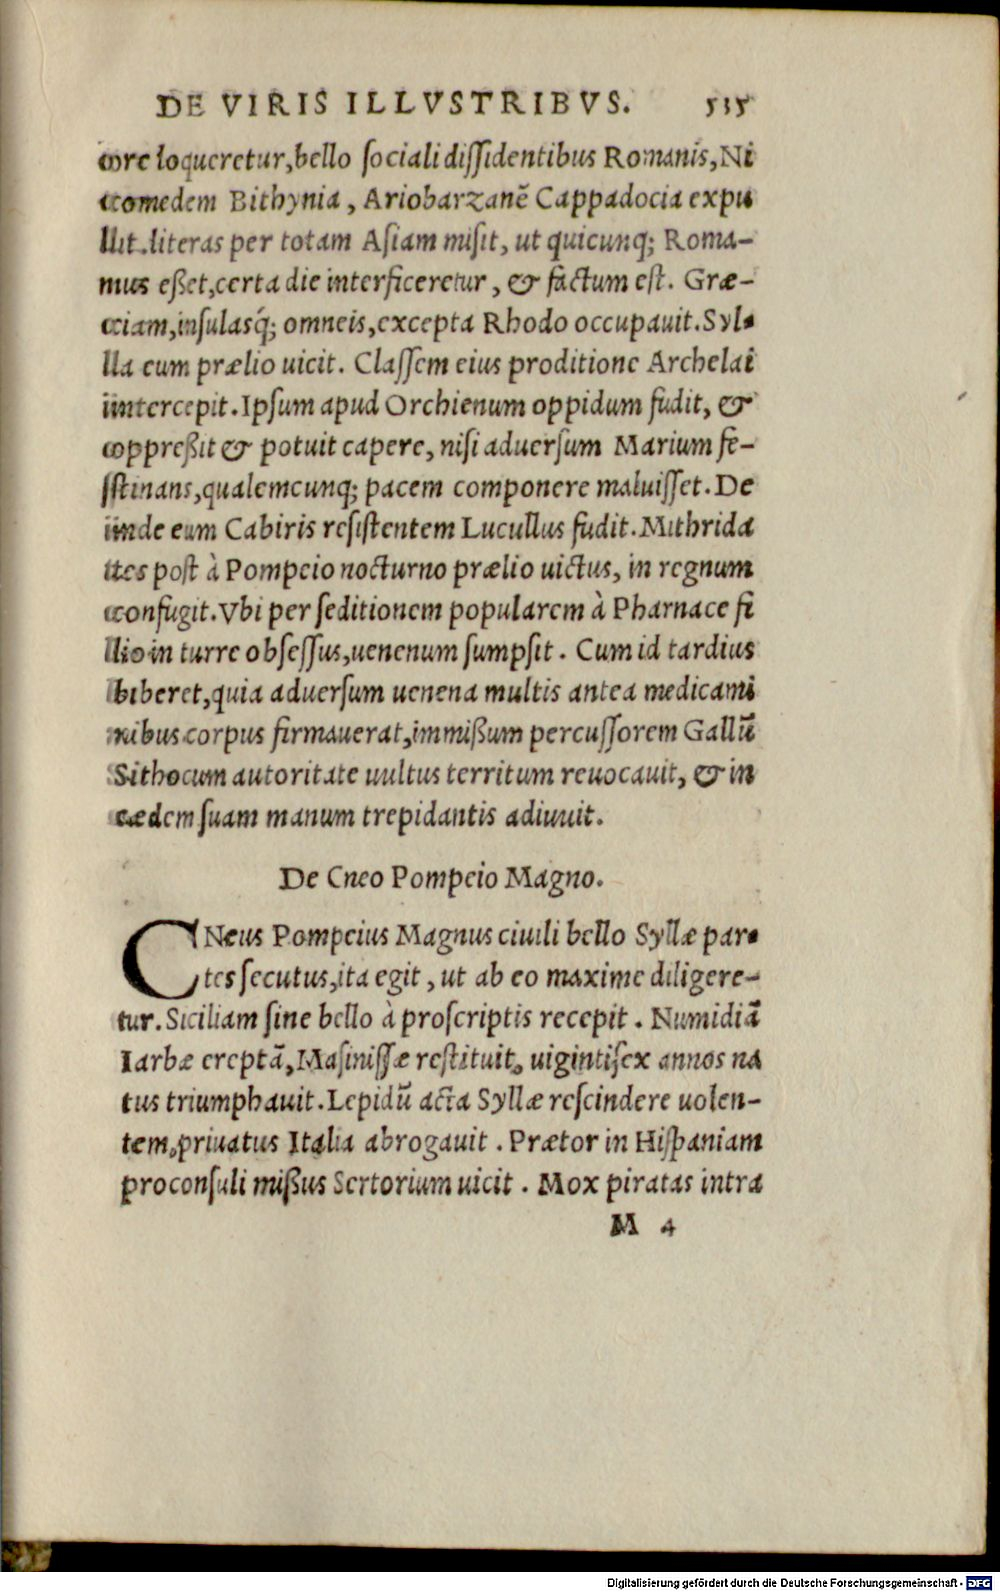 DE VIRIS ILLVSTRIBVS. 535
ore loqueretur, bello ſociali diſſidentibus Romanis, Ni
comedem Bithynia, Ariobarzanē Cappadocia expu
lit. literas per totam Aſiam miſit, ut quicunq; Roma-
nus eßet, certa die interficeretur, & factum eſt. Græ-
ciam, inſulasq́; omneis, excepta Rhodo occupauit. Syl-
la eum prælio uicit. Claſſem eius proditione Archelai
intercepit. Ipſum apud Orchienum oppidum fudit, &
oppreßit & potuit capere, niſi aduerſum Marium fe-
ſtinans, qualemcunq; pacem componere maluiſſet. De
inde eum Cabiris reſiſtentem Lucullus fudit. Mithrida
tes poſt à Pompeio nocturno prælio uictus, in regnum
confugit. Vbi per ſeditionem popularem à Pharnace fi
lio in turre obſeſſus, uenenum ſumpſit. Cum id tardius
biberet, quia aduerſum uenena multis antea medicami
nibus corpus firmauerat, immißum percuſſorem Gallū
Sithocum autoritate uultus territum reuocauit, & in
cædem ſuam manum trepidantis adiuuit.
De Cneo Pompeio Magno.
CNeus Pompeius Magnus ciuili bello Syllæ par-
tes ſecutus, ita egit, ut ab eo maxime diligere-
tur. Siciliam ſine bello à proſcriptis recepit. Numidiā
Iarbæ ereptā, Maſiniſſæ reſtituit. uigintiſex annos na
tus triumphauit. Lepidū acta Syllæ reſcindere uolen-
tem, priuatus Italia abrogauit. Prætor in Hiſpaniam
proconſuli mißus Sertorium uicit. Mox piratas intra
M 4
Digitalisierung gefördert durch die Deutsche Forschungsgemeinschaft - DFG